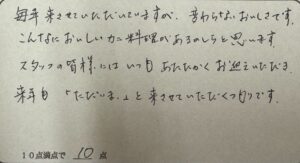 毎年来させていただいていますが、昔からずっとおいしさです。
こんなにおいしいカニ料理があるのかしらと思います。
スタッフの皆様にはいつもあたたかくお迎えいただき
来年も「ただいま。」と来させていただくつもりです。
10点満点で 10 点